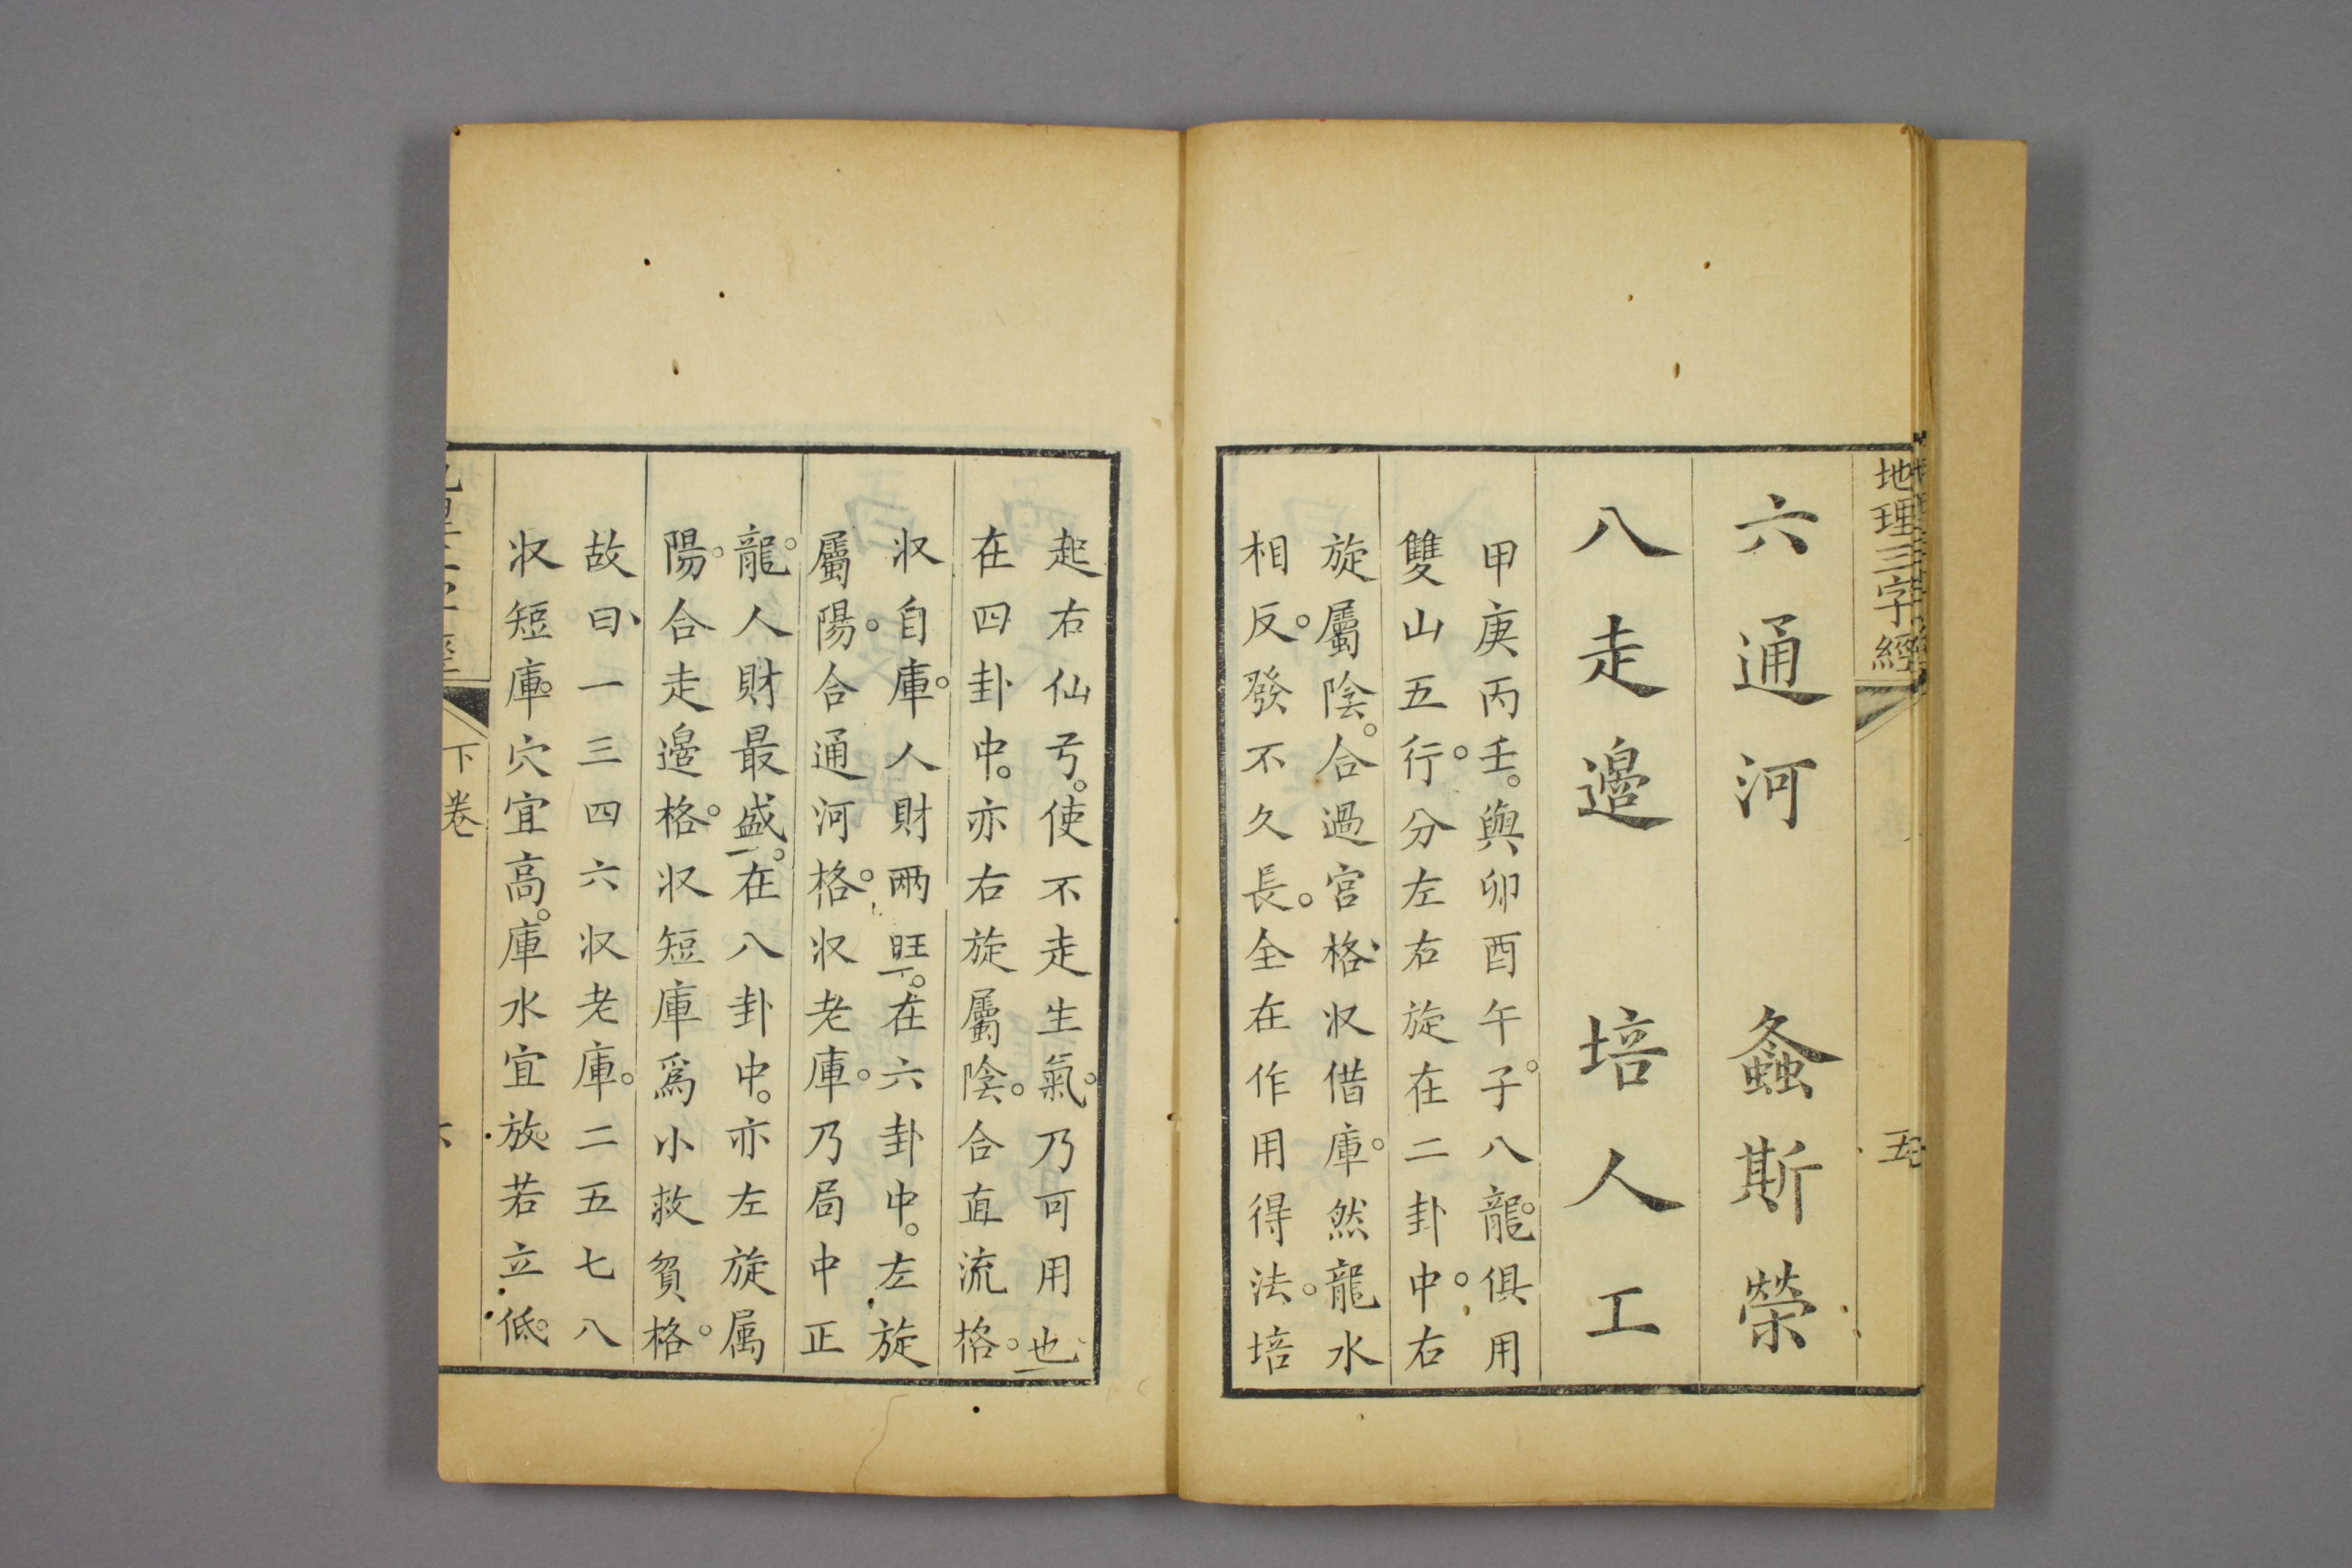 地理三字經
五
六通河　螽斯榮
八走邉　培人工
甲庚丙壬。與卯酉午子。八龍。俱用
雙山五行。分左右旋在二卦中。右
旋屬陰。合過宮格、収借庫。然龍水
相反。發不久長。全在作用得法。培
起右仙弓。使不走生氣。乃可用也
在四卦中。亦右旋屬陰。合直流格。
収自庫。人財兩旺。在六卦中。左旋
屬陽。合通河格。収老庫。乃局中正
龍。人財最盛。在八卦中。亦左旋属
陽。合走邉格。収短庫爲小救貧格。
故曰、一三四六収老庫。二五七八
収短庫。穴宜高。庫水宜放。若立低。
下卷